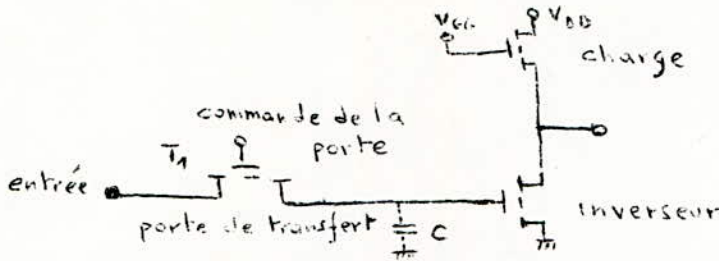 VGG
VDD
charge
commande de la
porte
T1
entrée
porte de transfert
C
inverseur